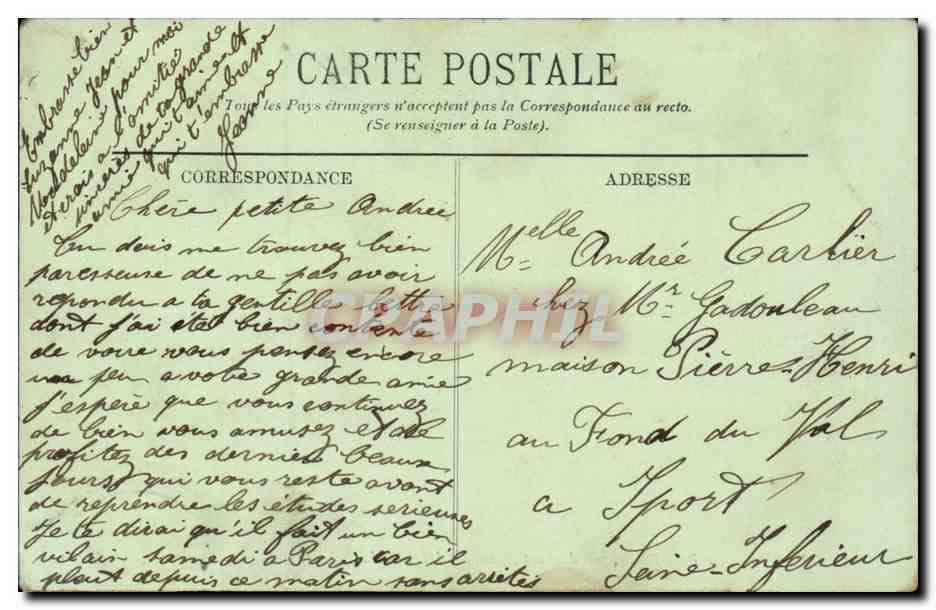 CARTE POSTALE
Tous les Pays étrangers n'acceptent pas la Correspondance au recto.
(Se renseigner à la Poste).
CORRESPONDANCE
Chère petite Andrée
Tu dois me trouvez bien
paresseuse de ne pas avoir
repondu a ta gentilles lettre
dont j'ai étée bien contente
de voire vous pensez encore
un peu a votre grande amie
j'espère que vous continuez
de bien vous amusez et de
profitez des dernier beaux
jours qui vous reste avant
de reprendre les études serieuses
Je te dirai qu'il fait un bien
vilain samedi a Paris car il
pleut depuis ce matin sans arrêtes
Embrasse bien
Suzanne Jean et
Madeleine pour moi
et crois a l'amitié
sincères de ta grande
amie qui t'aime et
qui t'embrasse
Jeanne
ADRESSE
Melle Andrée Carlier
chez Mr Gadouleau
maison Pièrre-Henri
au Fond du Val
a Yport
Seine-Inférieur
CPAPHIL